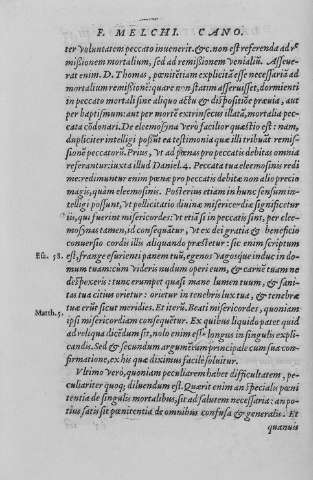 F. MELCHI. CANO.
ter voluntatem peccato inuenerit. &c. non est referenda ad re
missionem mortalium, sed ad remissionem venialiũ. Asseue
rat enim. D. Thomas, pœnitẽtiam explicitã esse necessariã ad
mortalium remissionẽ: quare non statim asseruisset, dormienti
in peccato mortali sine aliquo actu & dispositiõe præuia, aut
per baptismum: aut per mortẽ extrinsecus illatã, mortalia pec
cata cõdonari. De eleemosyna verò facilior quæstio est: nam,
dupliciter intelligi possũt ea testimonia quæ illi tribuũt remis-
sionẽ peccatorũ. Prius, vt ad pœnas pro peccatis debitas omnia
referantur: iuxta illud Daniel. 4. Peccata tua eleemosinis redi
me: redimuntur enim pœnæ pro peccatis debitæ non alio precio
magis, quàm eleemosinis. Posterius etiam in hunc sensum in-
telligi possunt, vt pellicitatio diuinæ misericordiæ significetur
iis, qui fuerint misericordes: vt etiã si in peccatis sint, per elee-
mosynas tamen, id consequãtur, vt ex dei gratia & beneficio
conuersio cordis illis aliquando præstetur: sic enim scriptum
Esa. 58. est, frange esurienti panem tuũ, egenos vagosque induc in do-
mum tuam: cùm videris nudum operi eum, & carnẽ tuam ne
despexeris: tunc erumpet quasi mane lumen tuum, & sani-
tas tua citius orietur: orietur in tenebris lux tua, & tenebræ
Matth. 5. tuæ erũt sicut meridies. Et iterũ. Beati misericordes, quoniam
ipsi misericordiam consequẽtur. Ex quibus liquidò patet quid
ad reliqua dicẽdum sit, nolo enim esse longus in singulis expli-
candis. Sed & secundum argumẽtum principale cum sua con-
firmatione, ex his quæ diximus facilè soluitur.
Vltimo verò, quoniam peculiarem habet difficultatem, pe-
culiariter quoq; diluendum est. Quærit enim an specialis pœni
tentia de singulis mortalibus, sit ad salutem necessaria: an po-
tius satis sit pœnitentia de omnibus confusa & generalis. Et
quanuis